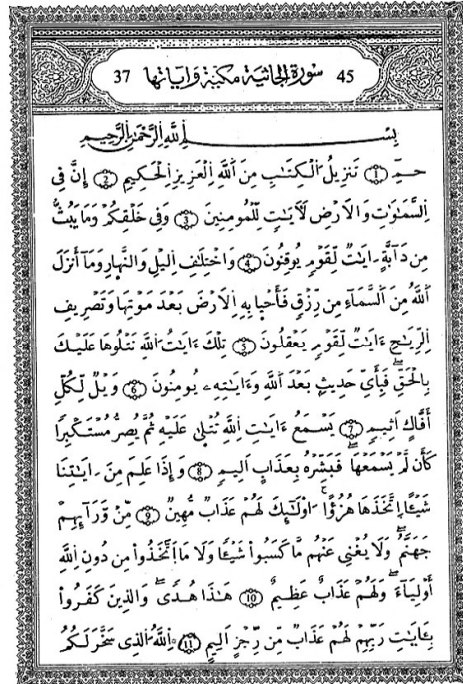 45 سُورَةُ الْجَاثِيَةِ مَكِّيَّةٌ وَءَايَاتُهَا 37
بِسْمِ اِللَّهِ اِلرَّحْمَٰنِ اِلرَّحِيمِ
حَمِّٓ (1) تَنزِيلُ اُلْكِتَٰبِ مِنَ اَللَّهِ اِلْعَزِيزِ اِلْحَكِيمِ (2) إِنَّ فِي
اِلسَّمَٰوَٰتِ وَالَارْضِ لَأٓيَٰتٖ لِّلْمُومِنِينَ (3) وَفِي خَلْقِكُمْ وَمَا يَبُثُّ
مِن دَآبَّةٍ ءَايَٰتٞ لِّقَوْمٖ يُوقِنُونَ (4) وَاخْتِلَٰفِ اِليْلِ وَالنَّهَارِ وَمَآ أَنزَلَ
اَللَّهُ مِنَ اَلسَّمَآءِ مِن رِّزْقٖ فَأَحْيَا بِهِ اِلَارْضَ بَعْدَ مَوْتِهَا وَتَصْرِيفِ
اِلرِّيَٰحِ ءَايَٰتٞ لِّقَوْمٖ يَعْقِلُونَ (5) تِلْكَ ءَايَٰتُ اُللَّهِ نَتْلُوهَا عَلَيْكَ
بِالْحَقِّ فَبِأَيِّ حَدِيثِۢ بَعْدَ اَللَّهِ وَءَايَٰتِهِۦ يُومِنُونَ (6) وَيْلٞ لِّكُلِّ
أَفَّاكٍ اَثِيمٖ (7) يَسْمَعُ ءَايَٰتِ اِللَّهِ تُتْلَىٰ عَلَيْهِ ثُمَّ يُصِرُّ مُسْتَكْبِرٗا
كَأَن لَّمْ يَسْمَعْهَا فَبَشِّرْهُ بِعَذَابٍ اَلِيمٖ (8) وَإِذَا عَلِمَ مِنَ ـ ايَٰتِنَا
شَيْـًٔا اِتَّخَذَهَا هُزُؤًا ا۟وْلَٰٓئِكَ لَهُمْ عَذَابٞ مُّهِينٞ (9) مِّنْ وَّرَآئِهِمْ
جَهَنَّمُ وَلَا يُغْنِي عَنْهُم مَّا كَسَبُواْ شَيْـٔٗا وَلَا مَا اَتَّخَذُواْ مِن دُونِ اِللَّهِ
أَوْلِيَآءَ وَلَهُمْ عَذَابٌ عَظِيمٌ (10) هَٰذَا هُدٗى وَالذِينَ كَفَرُواْ
بِـَٔايَٰتِ رَبِّهِمْ لَهُمْ عَذَابٞ مِّن رِّجْزٍ اَلِيمٍ (11) اِللَّهُ اُلذِي سَخَّرَ لَكُمُ